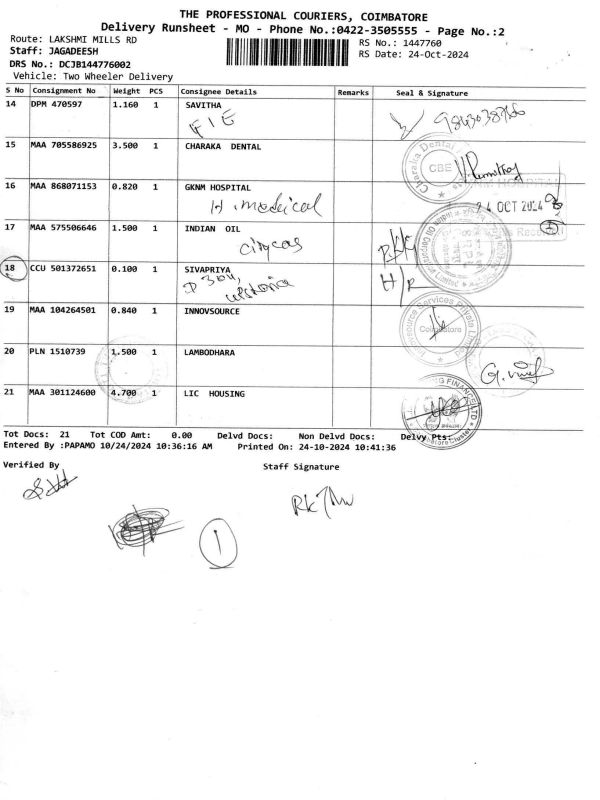 THE PROFESSIONAL COURIERS, COIMBATORE
Delivery Runsheet - MO - Phone No.:0422-3505555 - Page No.:2
Route: LAKSHMI MILLS RD
RS No.: 1447760
Staff: JAGADEESH
RS Date: 24-Oct-2024
DRS No.: DCJB144776002
Vehicle: Two Wheeler Delivery
S No Consignment No Weight PCS Consignee Details Remarks Seal & Signature
14 DPM 470597 1.160 1 SAVITHA
15 MAA 705586925 3.500 1 CHARAKA DENTAL
Charaka Dental
CBE
16 MAA 868071153 0.820 1 GKNM HOSPITAL
H. medical
24 OCT 2024
17 MAA 575506646 1.500 1 INDIAN OIL
citygas
18 CCU 501372651 0.100 1 SIVAPRIYA
H/R
19 MAA 104264501 0.840 1 INNOVSOURCE
Innovsource Services Private Limited
Coimbatore
20 PLN 1510739 1.500 1 LAMBODHARA
21 MAA 301124600 4.700 1 LIC HOUSING
Tot Docs: 21 Tot COD Amt: 0.00 Delvd Docs: Non Delvd Docs: Delvy Pts:
Entered By :PAPAMO 10/24/2024 10:36:16 AM Printed On: 24-10-2024 10:41:36
Verified By
Staff Signature
1